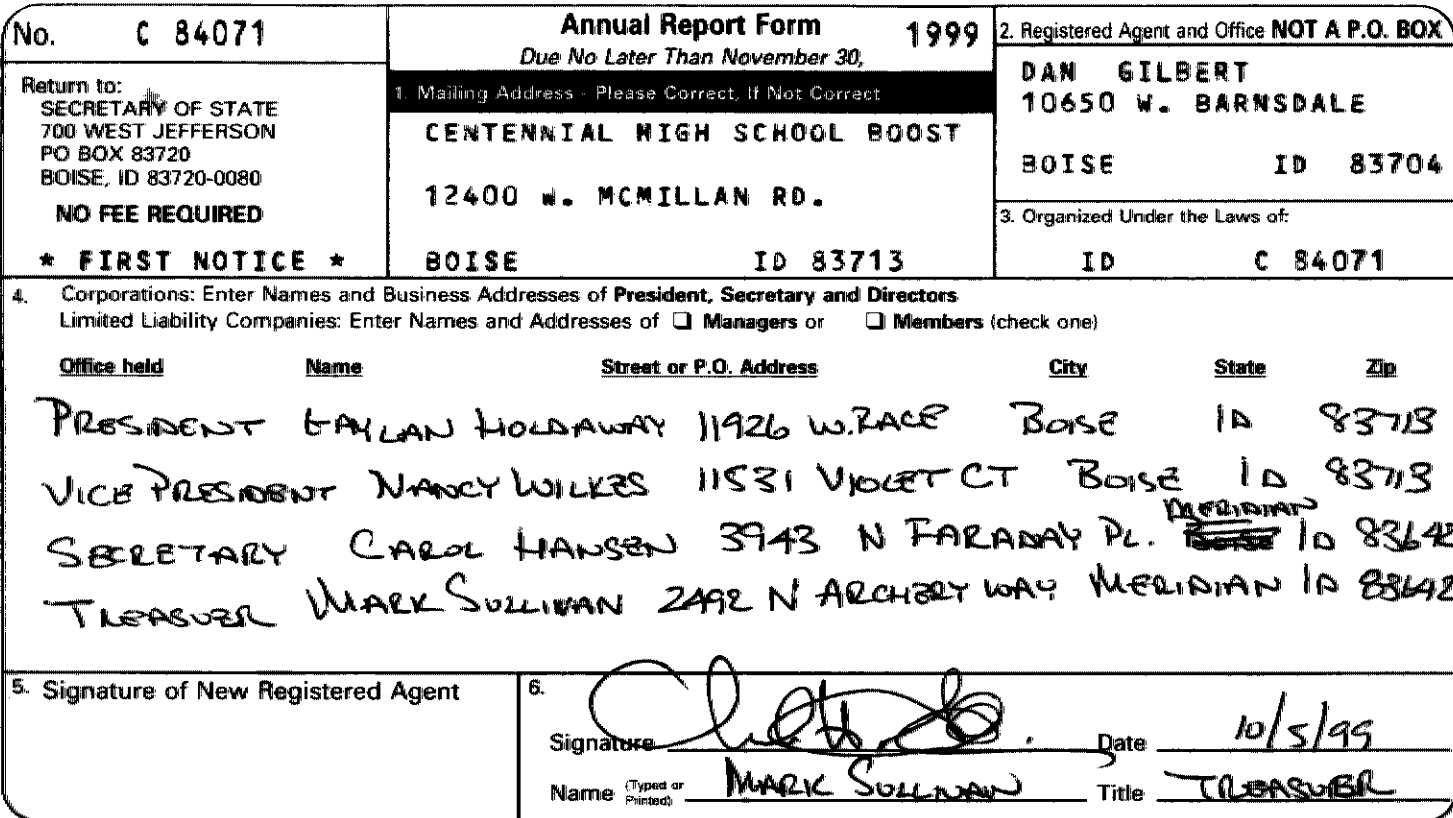 No. C 84071
Annual Report Form 1999
Due No Later Than November 30,
Return to:
SECRETARY OF STATE
700 WEST JEFFERSON
PO BOX 83720
BOISE, ID 83720-0080
NO FEE REQUIRED
* FIRST NOTICE *
1. Mailing Address - Please Correct, If Not Correct
CENTENNIAL HIGH SCHOOL BOOST
12400 W. MCMILLAN RD.
BOISE ID 83713
2. Registered Agent and Office NOT A P.O. BOX
DAN GILBERT
10650 W. BARNSDALE
BOISE ID 83704
3. Organized Under the Laws of:
ID C 84071
4. Corporations: Enter Names and Business Addresses of President, Secretary and Directors
Limited Liability Companies: Enter Names and Addresses of ❑ Managers or ❑ Members (check one)
Office held Name Street or P.O. Address City State Zip
PRESIDENT GAYLAN HOLDAWAY 11926 W. RACE BOISE ID 83713
VICE PRESIDENT NANCY WILKES 11531 VIOLET CT BOISE ID 83713
SECRETARY CAROL HANSEN 3943 N FARADAY PL. MERIDIAN ID 83642
TREASUER MARK SULLIVAN 2492 N ARCHERY WAY MERIDIAN ID 83642
5. Signature of New Registered Agent
6.
Signature Date 10/5/99
Name (Typed or Printed) MARK SULLIVAN Title TREASUER